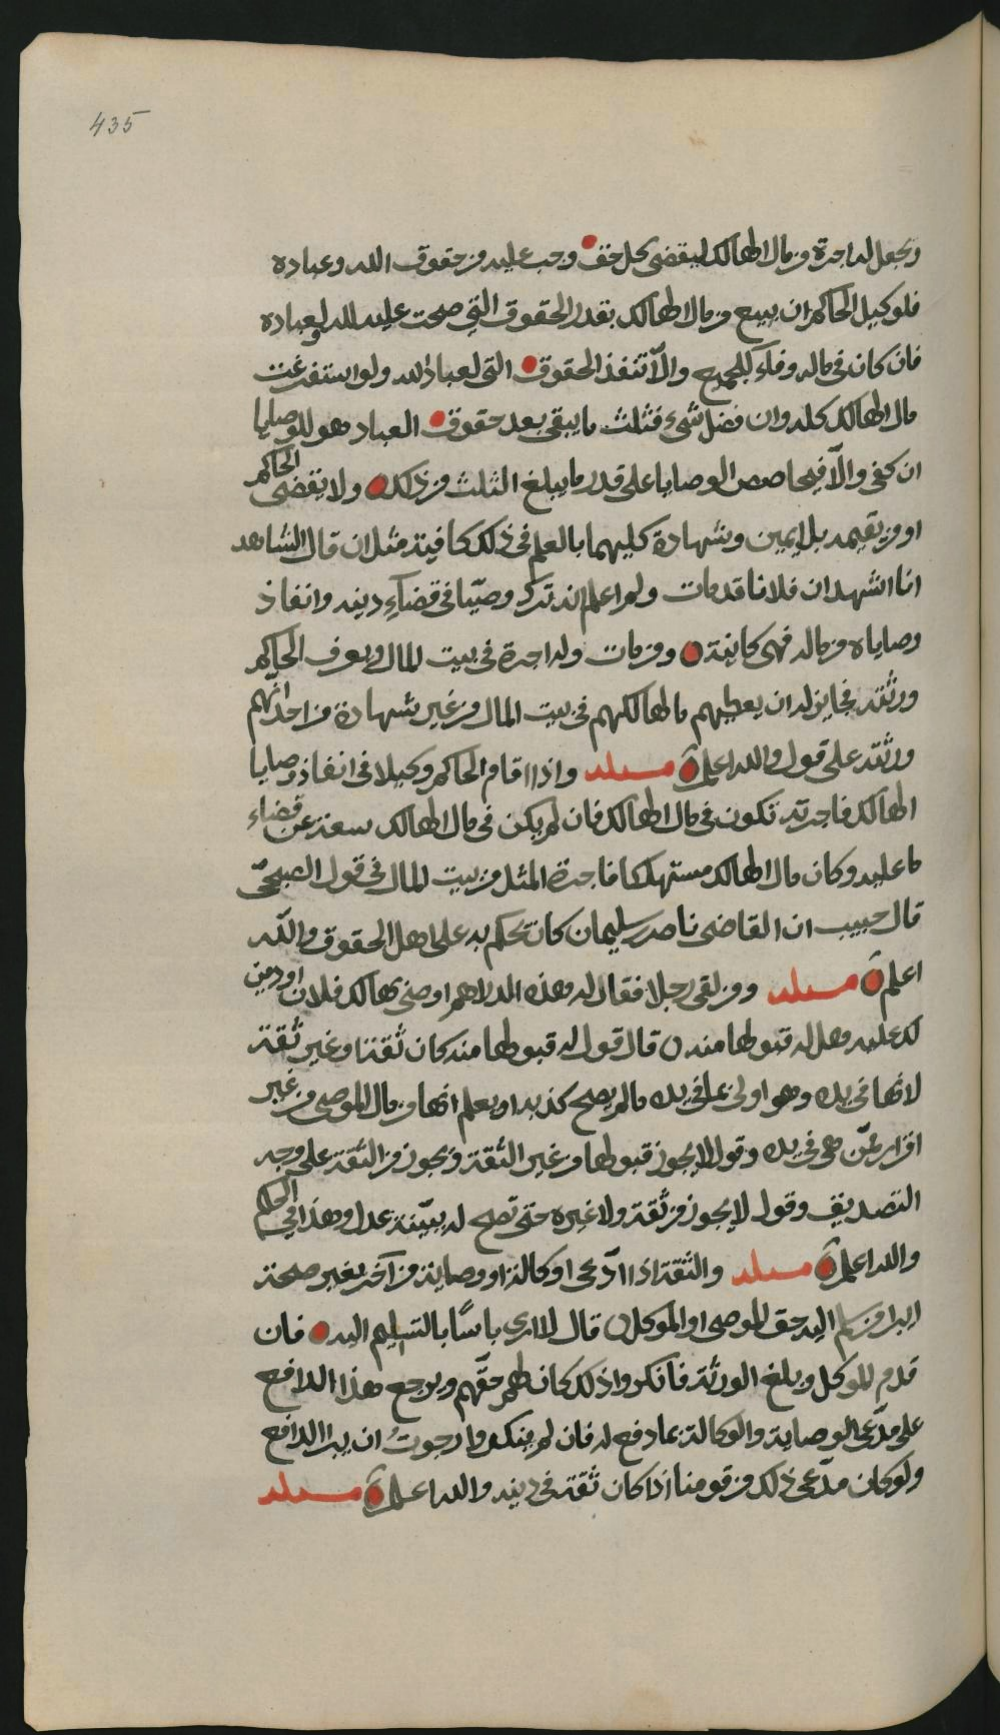 435
ويجعل له اجرة من مال الهالك ليقضي كل حق وجب عليه من حقوق الله وعباده
فلوكيل الحاكم ان يبيع من مال الهالك بقدر الحقوق التي صحت عليه لله ولعباده
فان كان في ماله وفاء للجميع والا تنفذ الحقوق التي لعباد الله ولو استفرغت
مال الهالك كله وان فضل شيء فثلث ما يبقى بعد حقوق العباد هو للوصايا
ان كفى والا فيحاصص الوصايا على قدر ما يبلغ الثلث من ذلك ولا يقضي الحاكم
او من يقيمه بلا يمين وشهادة كليهما بالعلم في ذلك كافية مثل ان قال الشاهد
انا اشهد ان فلانا قد مات ولم اعلم انه ترك وصيّا في قضاء دينه وانفاذ
وصاياه من ماله فهي كافية ومن مات وله اجرة في بيت المال ويعرف الحاكم
ورثته فجايز له ان يعطيهم ما لهالكهم في بيت المال من غير شهادة من احد انهم
ورثته على قول والله اعلم مسئلة واذا اقام الحاكم وكيلا في انفاذ وصايا
الهالك فاجرته تكون في مال الهالك فان لم يكن في مال الهالك سعة عن قضاء
ما عليه وكان مال الهالك مستهلكا فاجرة المثل من بيت المال في قول الصبحيّ
قال حبيب ان القاضي ناصر بن سليمان كان يحكم به على اهل الحقوق والله
اعلم مسئلة ومن لقي رجلا فقال له هذه الدراهم اوصى بها لك فلان او دين
لك عليه وهل له قبولها منه قال قول له قبولها منه كان ثقة او غير ثقة
لانها في يده وهو اولى بما في يده ما لم يصح كذبه او يعلم انها من مال الموصي من غير
اقرار ممّن هي في يده وقول لا يجوز قبولها من غير الثقة ويجوز من الثقة على وجه
التصديق وقول لا يجوز من ثقة ولا غيره حتى تصح له ببيّنة عدل وهذا في الحكم
والله اعلم مسئلة والثقة اذا ادّعى او كالة او وصاية من آخر بغير صحة
ايبرا من سلم اليه حق الموصي او الموكل قال لا ارى باسًا بالتسليم اليه فان
قدم الموكل وبلغ الورثة فانكروا ذلك كان لهم حقّهم ويرجع هذا الدافع
على مدّعي الوصاية والوكالة بما دفع له فان لم ينكروا رجوتُ ان يبرا الدافع
ولو كان مدّعي ذلك من قومنا اذا كان ثقة في دينه والله اعلم مسئلة